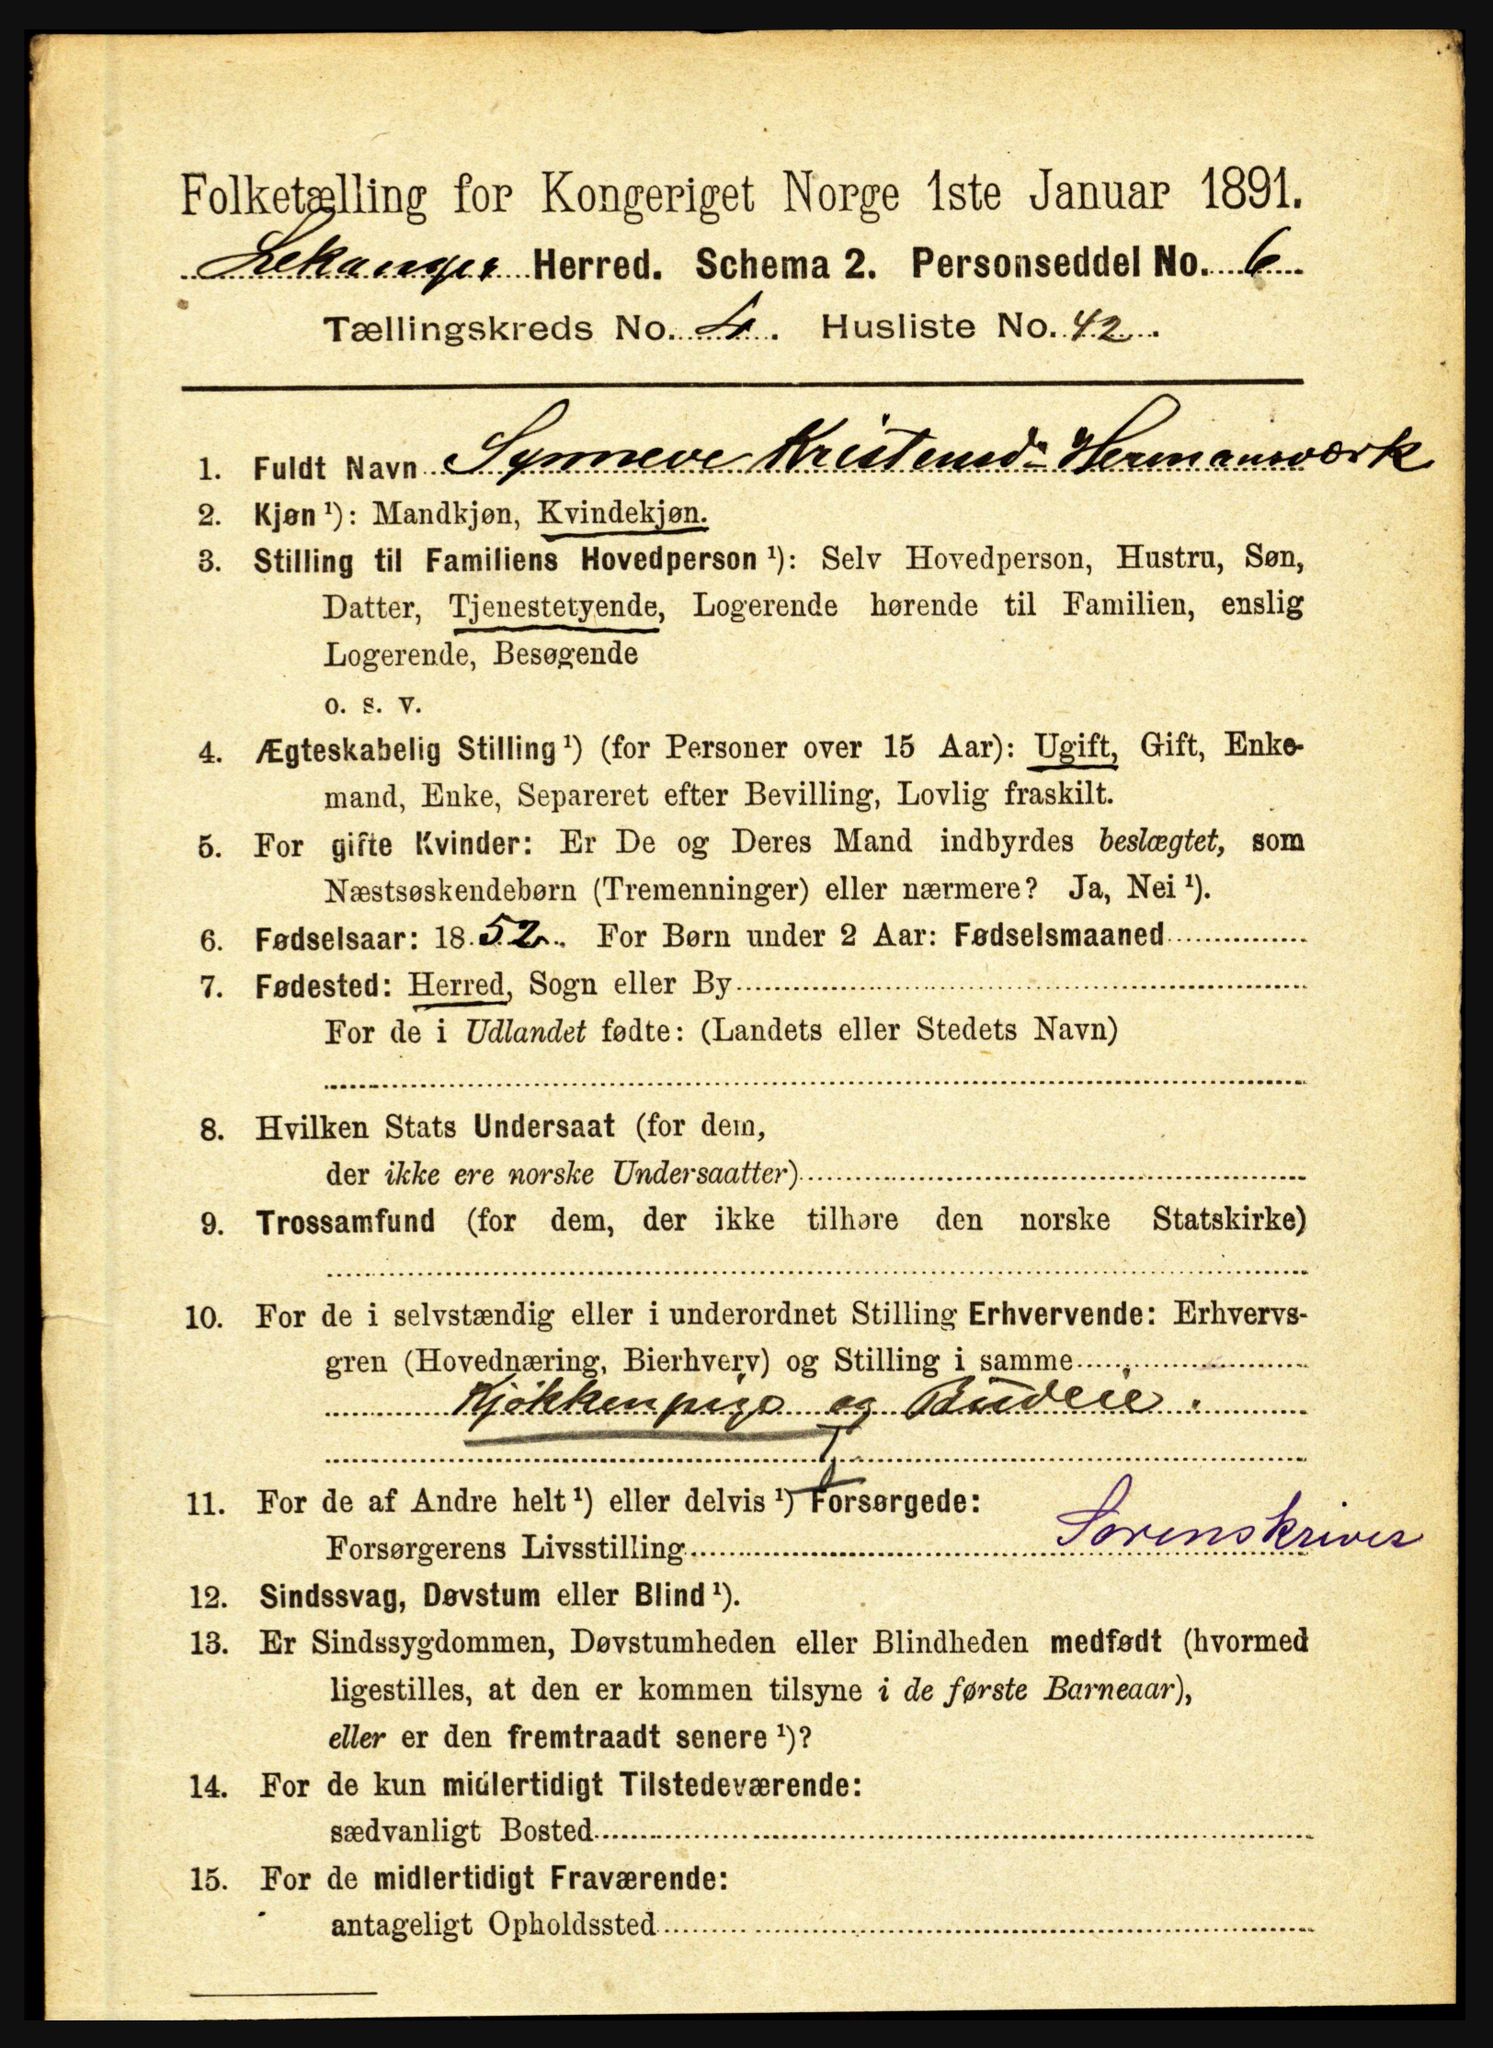 Folketælling for Kongeriget Norge 1ste Januar 1891.
Lekanger Herred. Schema 2. Personseddel No. 6
Tællingskreds No. 4. Husliste No. 42.
1. Fuldt Navn Synneve Kristensd. Hermansværk
2. Kjøn ¹): Mandkjøn, Kvindekjøn.
3. Stilling til Familiens Hovedperson ¹): Selv Hovedperson, Hustru, Søn,
Datter, Tjenestetyende, Logerende hørende til Familien, enslig
Logerende, Besøgende
o. s. v.
4. Ægteskabelig Stilling ¹) (for Personer over 15 Aar): Ugift, Gift, Enke-
mand, Enke, Separeret efter Bevilling, Lovlig fraskilt.
5. For gifte Kvinder: Er De og Deres Mand indbyrdes beslægtet, som
Næstsøskendebørn (Tremenninger) eller nærmere? Ja, Nei ¹).
6. Fødselsaar: 1852. For Børn under 2 Aar: Fødselsmaaned
7. Fødested: Herred, Sogn eller By
For de i Udlandet fødte: (Landets eller Stedets Navn)
8. Hvilken Stats Undersaat (for dem,
der ikke ere norske Undersaatter)
9. Trossamfund (for dem, der ikke tilhøre den norske Statskirke)
10. For de i selvstændig eller i underordnet Stilling Erhvervende: Erhvervs-
gren (Hovednæring, Bierhverv) og Stilling i samme
Kjøkkenpige og Budeie.
11. For de af Andre helt ¹) eller delvis ¹) Forsørgede:
Forsørgerens Livsstilling Sorenskriver
12. Sindssvag, Døvstum eller Blind ¹).
13. Er Sindssygdommen, Døvstumheden eller Blindheden medfødt (hvormed
ligestilles, at den er kommen tilsyne i de første Barneaar),
eller er den fremtraadt senere ¹)?
14. For de kun midlertidigt Tilstedeværende:
sædvanligt Bosted
15. For de midlertidigt Fraværende:
antageligt Opholdssted